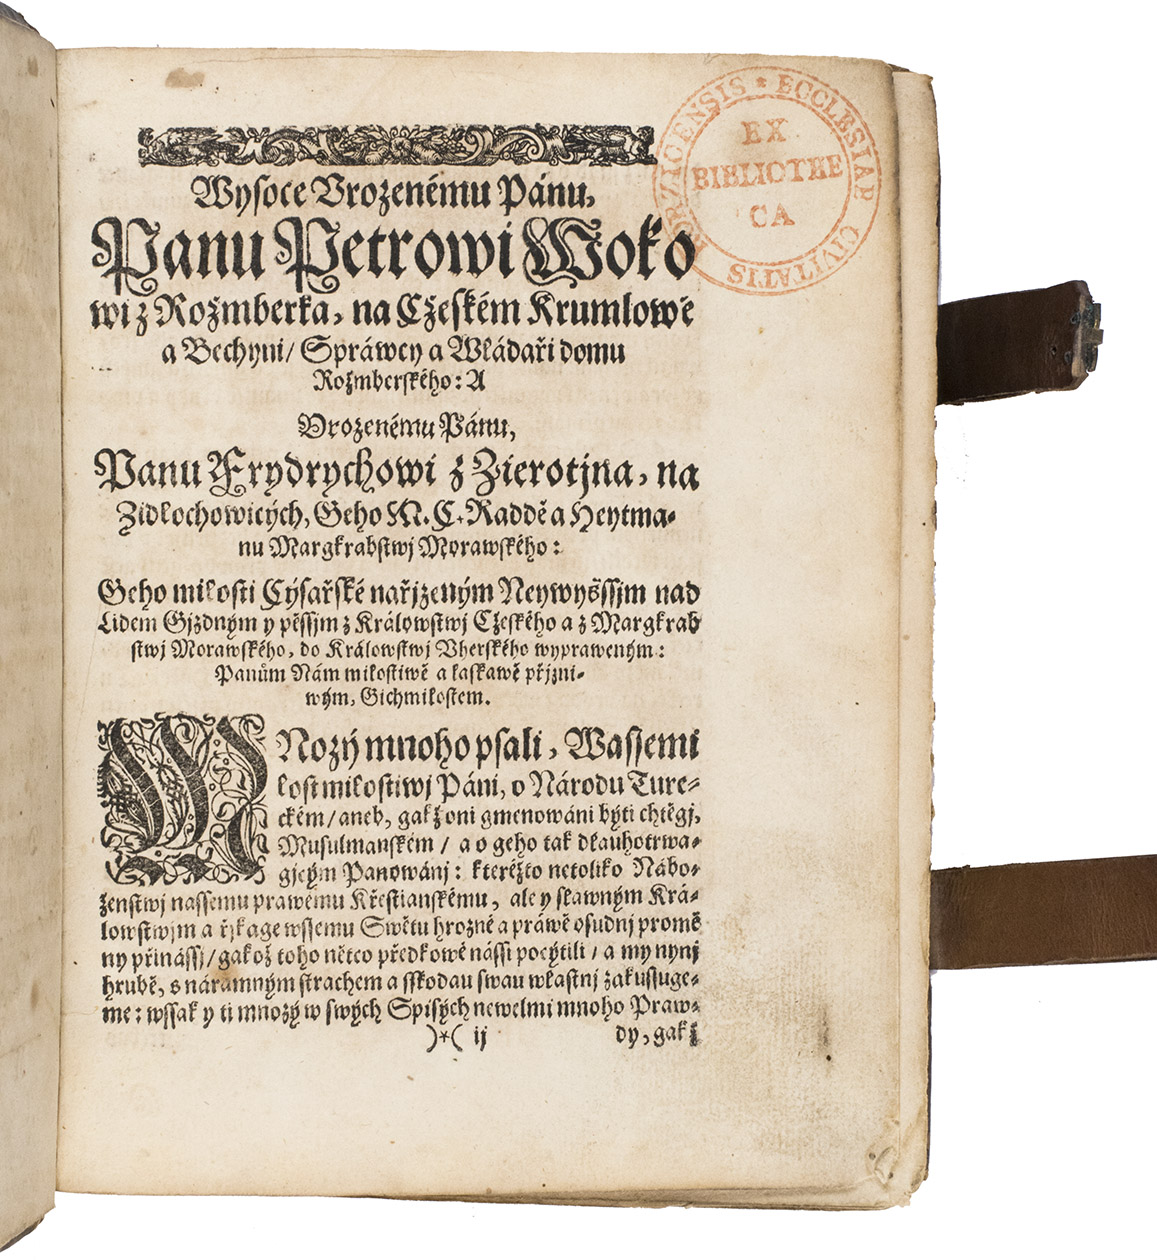 Wysoce Vrozenému Pánu,
Panu Petrowi Woko
wi z Rožmberka, na Cžeském Krumlowě
a Bechyni/ Spráwcy a Wládaři domu
Rožmberského: A
Vrozenému Pánu,
Panu Frydrychowi z Zierotjna, na
Zidlochowicých, Geho M. C. Raddě a Heytma-
nu Margkrabstwj Morawského:
Geho milosti Cýsařské nařjzeným Neywyšssjm nad
Lidem Gjzdným y pěssjm z Králowstwj Cžeského a z Margkrab
stwj Morawského, do Králowstwj Vherského wypraweným:
Panům Nám milostiwě a laskawě přjzni-
wým, Gichmilostem.
MNozý mnoho psali, Wassemi
lostmilostiwj Páni, o Národu Ture-
ckém/ aneb, gakž oni gmenowáni býti chtěgj,
Musulmanském/ a o geho tak dlauhotrwa-
gjcým Panowánj: kteréžto netoliko Nábo-
ženstwj nassemu prawému Křestianskému, ale y slawným Krá-
lowstwjm a řjkage wssemu Swětu hrozné a práwě osudnj promě
ny přinássj/ gakož toho něco předkowé nássi pocýtili/ a my nynj
hrubě, s náramným strachem a sskodau swau wlastnj zakussuge-
me: wssak y ti mnozý w swých Spisých newelmi mnoho Praw-
)*( ij dy, gakž
EX
BIBLIOTHE
CA
ECCLESIAE CIVITATIS